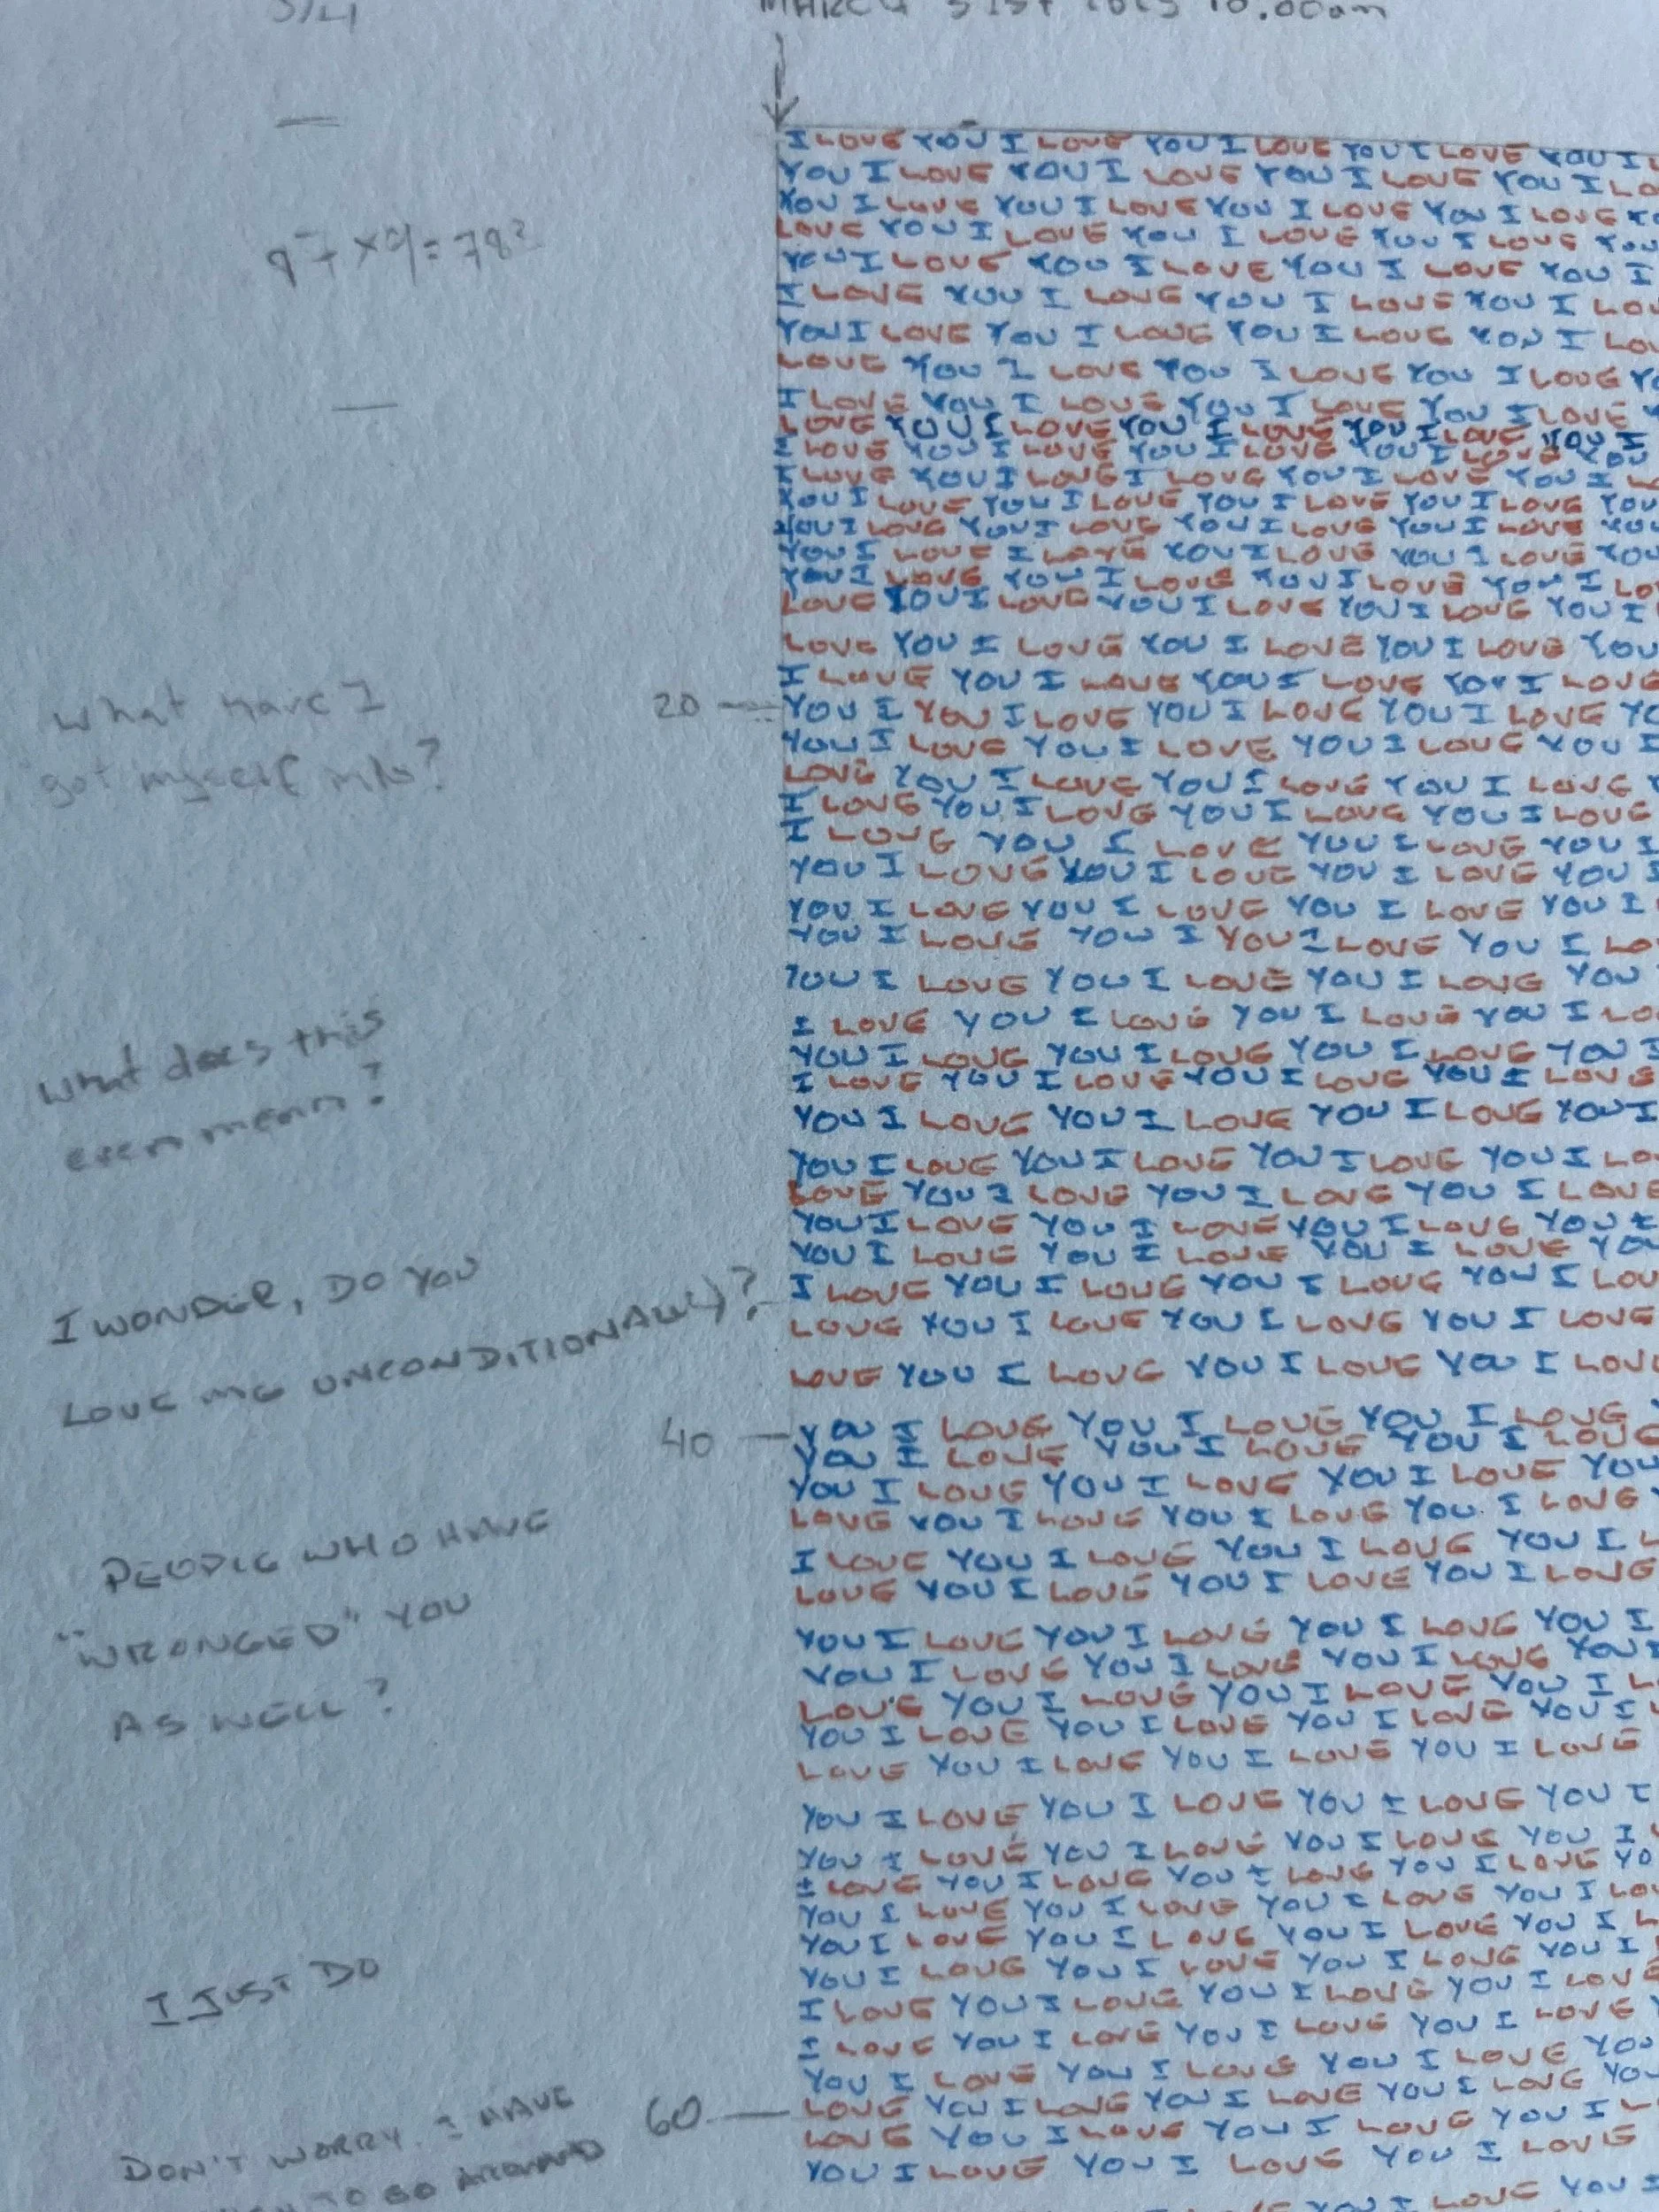 3/4
MARCH 31ST 10.00am
87 x 9 = 783
What have I
got myself into?
What does this
even mean?
I WONDER, DO YOU
LOVE ME UNCONDITIONALLY?
PEOPLE WHO HAVE
"WRONGED" YOU
AS WELL?
I JUST DO
DON'T WORRY. I HAVE
TO GO AROUND
20
40
60
I LOVE YOU I LOVE YOU I LOVE YOU I LOVE YOU I
YOU I LOVE YOU I LOVE YOU I LOVE YOU I LO
YOU I LOVE YOU I LOVE YOU I LOVE YOU I LOVE YO
LOVE YOU I LOVE YOU I LOVE YOU I LOVE YOU
YOU I LOVE YOU I LOVE YOU I LOVE YOU I
I LOVE YOU I LOVE YOU I LOVE YOU I LOV
YOU I LOVE YOU I LOVE YOU I LOVE YOU I LOV
LOVE YOU I LOVE YOU I LOVE YOU I LOVE YO
I LOVE YOU I LOVE YOU I LOVE YOU I LOVE
LOVE YOU I LOVE YOU I LOVE YOU I LOVE YOU I
I LOVE YOU I LOVE YOU I LOVE YOU I LOVE YOU
I LOVE YOU I LOVE I LOVE YOU I LOVE YOU I L
YOU I LOVE YOU I LOVE YOU I LOVE YOU I LOVE YOU
YOU I LOVE YOU I LOVE YOU I LOVE YOU I LOVE YOU
YOU I LOVE I LOVE YOU I LOVE YOU I LOVE YOU
YOU I LOVE YOU I LOVE YOU I LOVE YOU I LO
LOVE YOU I LOVE YOU I LOVE YOU I LOVE YOU I
LOVE YOU I LOVE YOU I LOVE YOU I LOVE YOU
I LOVE YOU I LOVE YOU I LOVE YOU I LOVE
YOU I YOU I LOVE YOU I LOVE YOU I LOVE YO
YOU I LOVE YOU I LOVE YOU I LOVE YOU I
LOVE YOU I LOVE YOU I LOVE YOU I LOVE Y
I LOVE YOU I LOVE YOU I LOVE YOU I LOVE
I LOVE YOU I LOVE YOU I LOVE YOU I
YOU I LOVE YOU I LOVE YOU I LOVE YOU I
YOU I LOVE YOU I LOVE YOU I LOVE YOU I
YOU I LOVE YOU I YOU I LOVE YOU I LO
YOU I LOVE YOU I LOVE YOU I LOVE YOU
I LOVE YOU I LOVE YOU I LOVE YOU I LO
YOU I LOVE YOU I LOVE YOU I LOVE YOU I
I LOVE YOU I LOVE YOU I LOVE YOU I LOVE
YOU I LOVE YOU I LOVE YOU I LOVE YOU I
YOU I LOVE YOU I LOVE YOU I LOVE YOU I LO
LOVE YOU I LOVE YOU I LOVE YOU I LOVE
YOU I LOVE YOU I LOVE YOU I LOVE YOU I
YOU I LOVE YOU I LOVE YOU I LOVE YOU
I LOVE YOU I LOVE YOU I LOVE YOU I LOV
LOVE YOU I LOVE YOU I LOVE YOU I LOVE
LOVE YOU I LOVE YOU I LOVE YOU I LOVE
YOU I LOVE YOU I LOVE YOU I LOVE Y
YOU I LOVE YOU I LOVE YOU I LOVE
YOU I LOVE YOU I LOVE YOU I LOVE YOU
LOVE YOU I LOVE YOU I LOVE YOU I LOVE Y
I LOVE YOU I LOVE YOU I LOVE YOU I L
LOVE YOU I LOVE YOU I LOVE YOU I LOVE
YOU I LOVE YOU I LOVE YOU I LOVE YOU I
YOU I LOVE YOU I LOVE YOU I LOVE YOU I
LOVE YOU I LOVE YOU I LOVE YOU I L
YOU I LOVE YOU I LOVE YOU I LOVE YOU I L
LOVE YOU I LOVE YOU I LOVE YOU I LOVE
YOU I LOVE YOU I LOVE YOU I LOVE YOU I
YOU I LOVE YOU I LOVE YOU I LOVE YOU I
I LOVE YOU I LOVE YOU I LOVE YOU I LOVE YO
YOU I LOVE YOU I LOVE YOU I LOVE YOU I LOV
YOU I LOVE YOU I LOVE YOU I LOVE YOU I L
YOU I LOVE YOU I LOVE YOU I LOVE YOU I
I LOVE YOU I LOVE YOU I LOVE YOU I LOVE
I LOVE YOU I LOVE YOU I LOVE YOU I LOVE Y
YOU I LOVE YOU I LOVE YOU I LOVE YOU
LOVE YOU I LOVE YOU I LOVE YOU I LOVE YOU
LOVE YOU I LOVE YOU I LOVE YOU I L
YOU I LOVE YOU I LOVE YOU I LOVE
YOU I LOVE YOU I